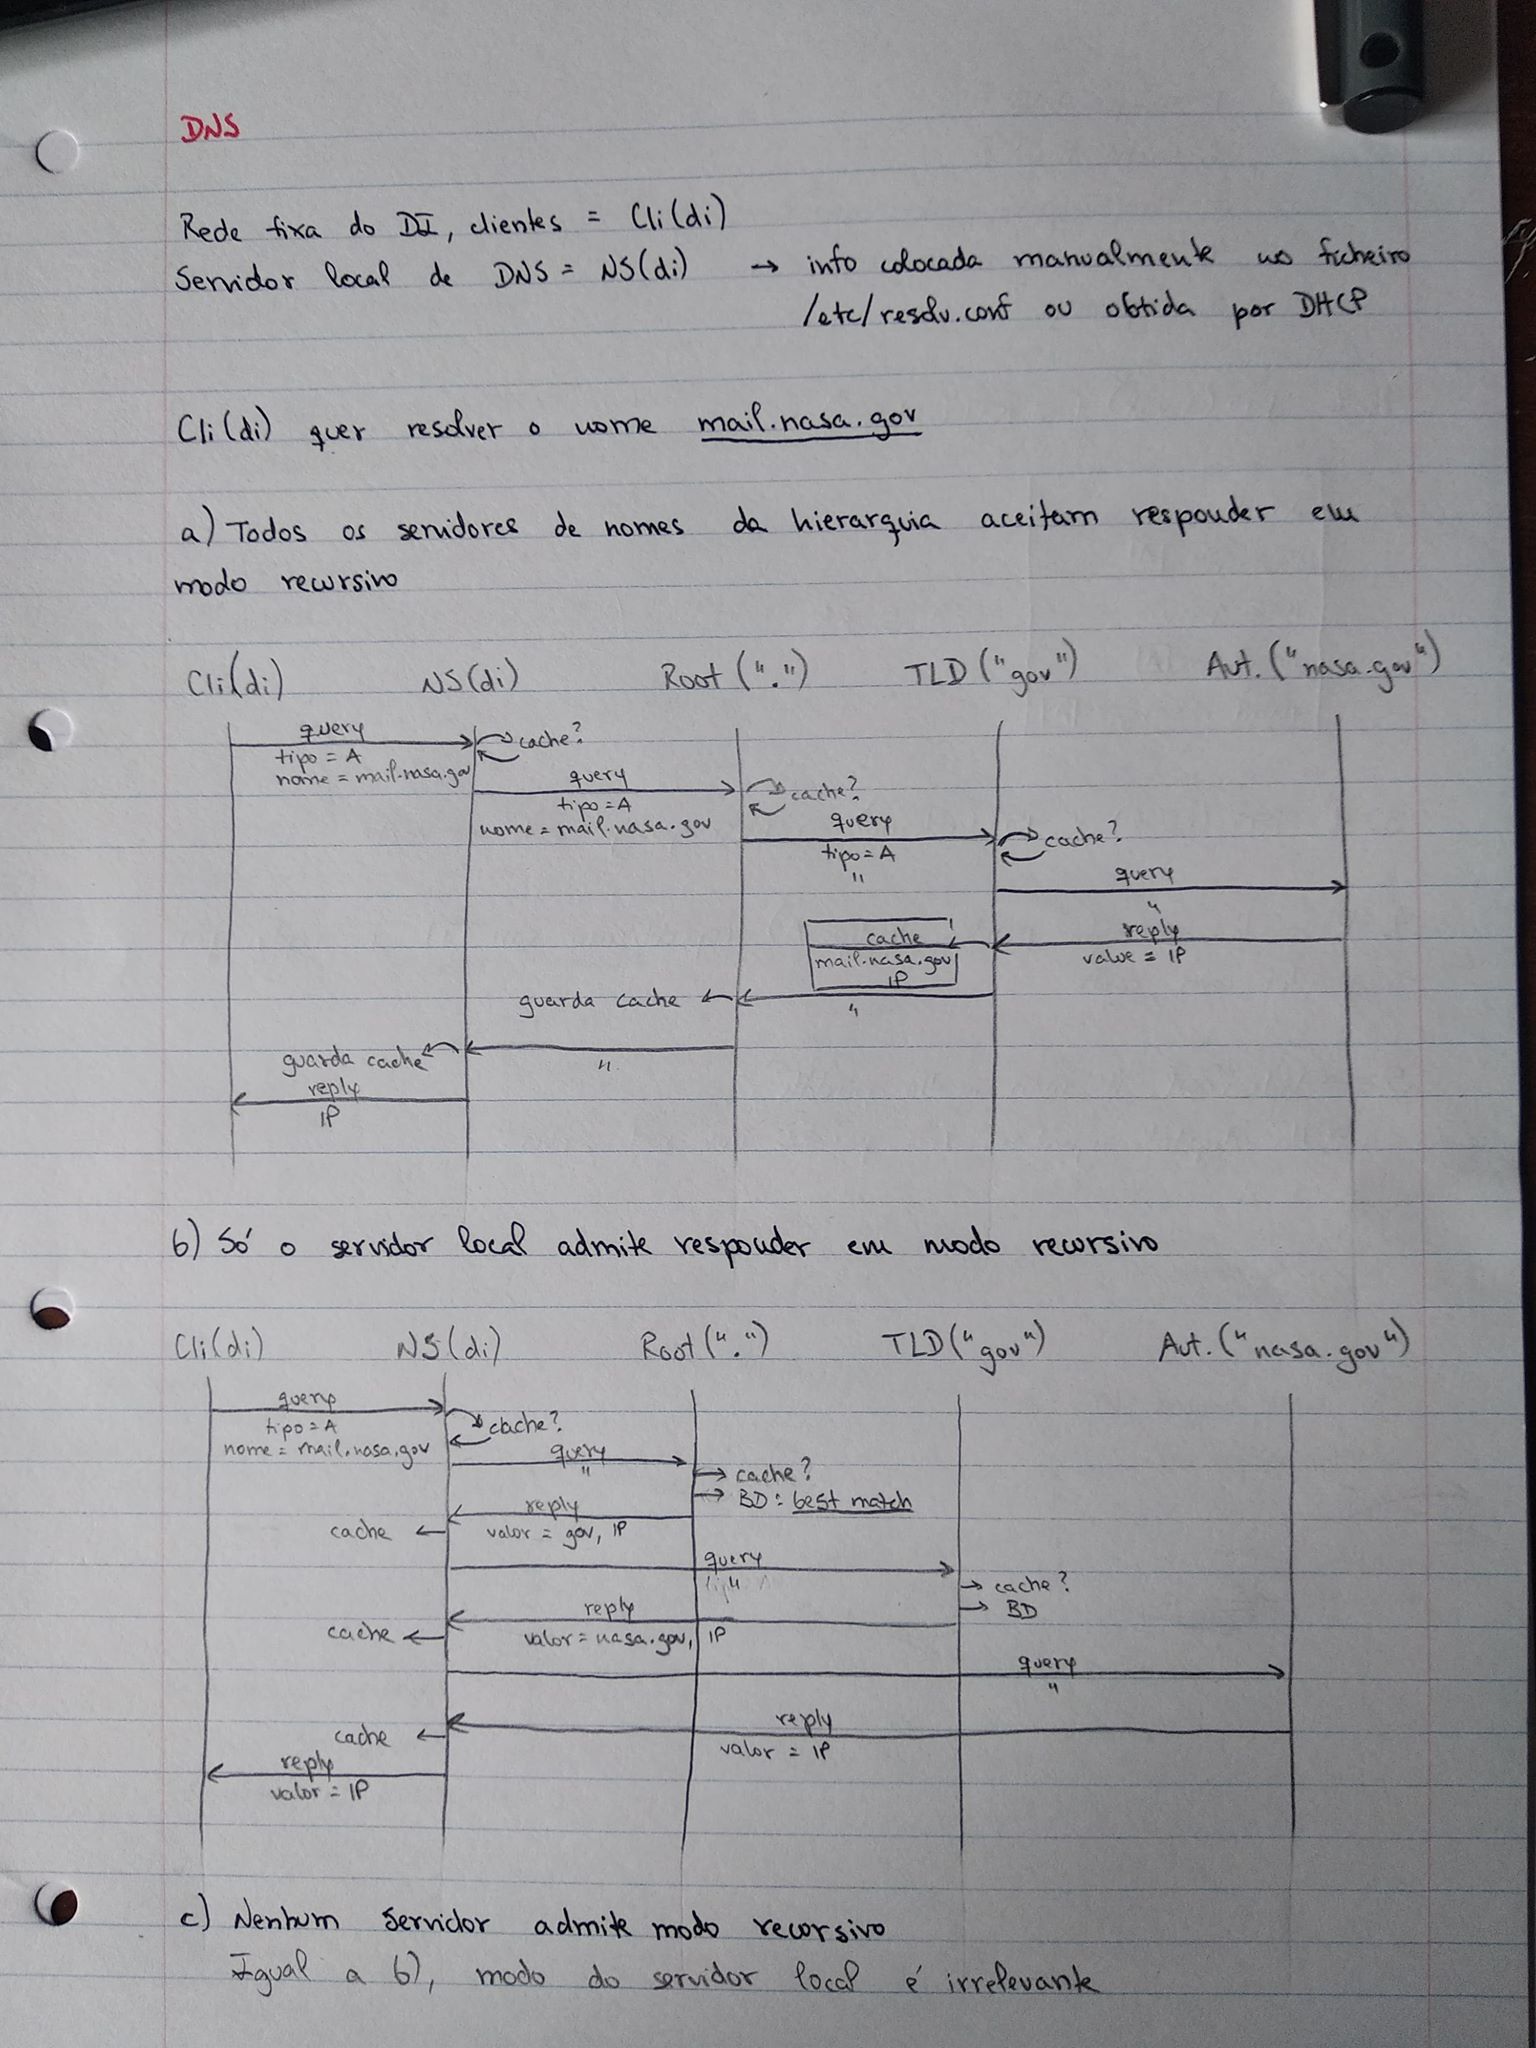 DNS
Rede fixa do DI, clientes = Cli(di)
Servidor local de DNS = NS(di) → info colocada manualmente no ficheiro
/etc/resolv.conf ou obtida por DHCP
Cli(di) quer resolver o nome mail.nasa.gov
a) Todos os servidores de nomes da hierarquia aceitam responder em
modo recursivo
Cli(di) NS(di) Root (".") TLD ("gov") Aut. ("nasa.gov")
query
cache?
tipo = A
nome = mail.nasa.gov
query
cache?
tipo = A
nome = mail.nasa.gov
query
cache?
tipo = A
"
query
"
reply
value = IP
cache
mail.nasa.gov
IP
guarda cache
"
guarda cache
"
reply
IP
b) Só o servidor local admite responder em modo recursivo
Cli(di) NS(di) Root(".") TLD("gov") Aut. ("nasa.gov")
query
tipo = A
nome = mail.nasa.gov
cache?
query
"
→ cache?
→ BD : best match
reply
valor = gov, IP
cache
query
"
→ cache?
→ BD
reply
valor = nasa.gov, IP
cache
query
"
reply
valor = IP
cache
reply
valor = IP
c) Nenhum servidor admite modo recursivo
Igual a b), modo do servidor local é irrelevante